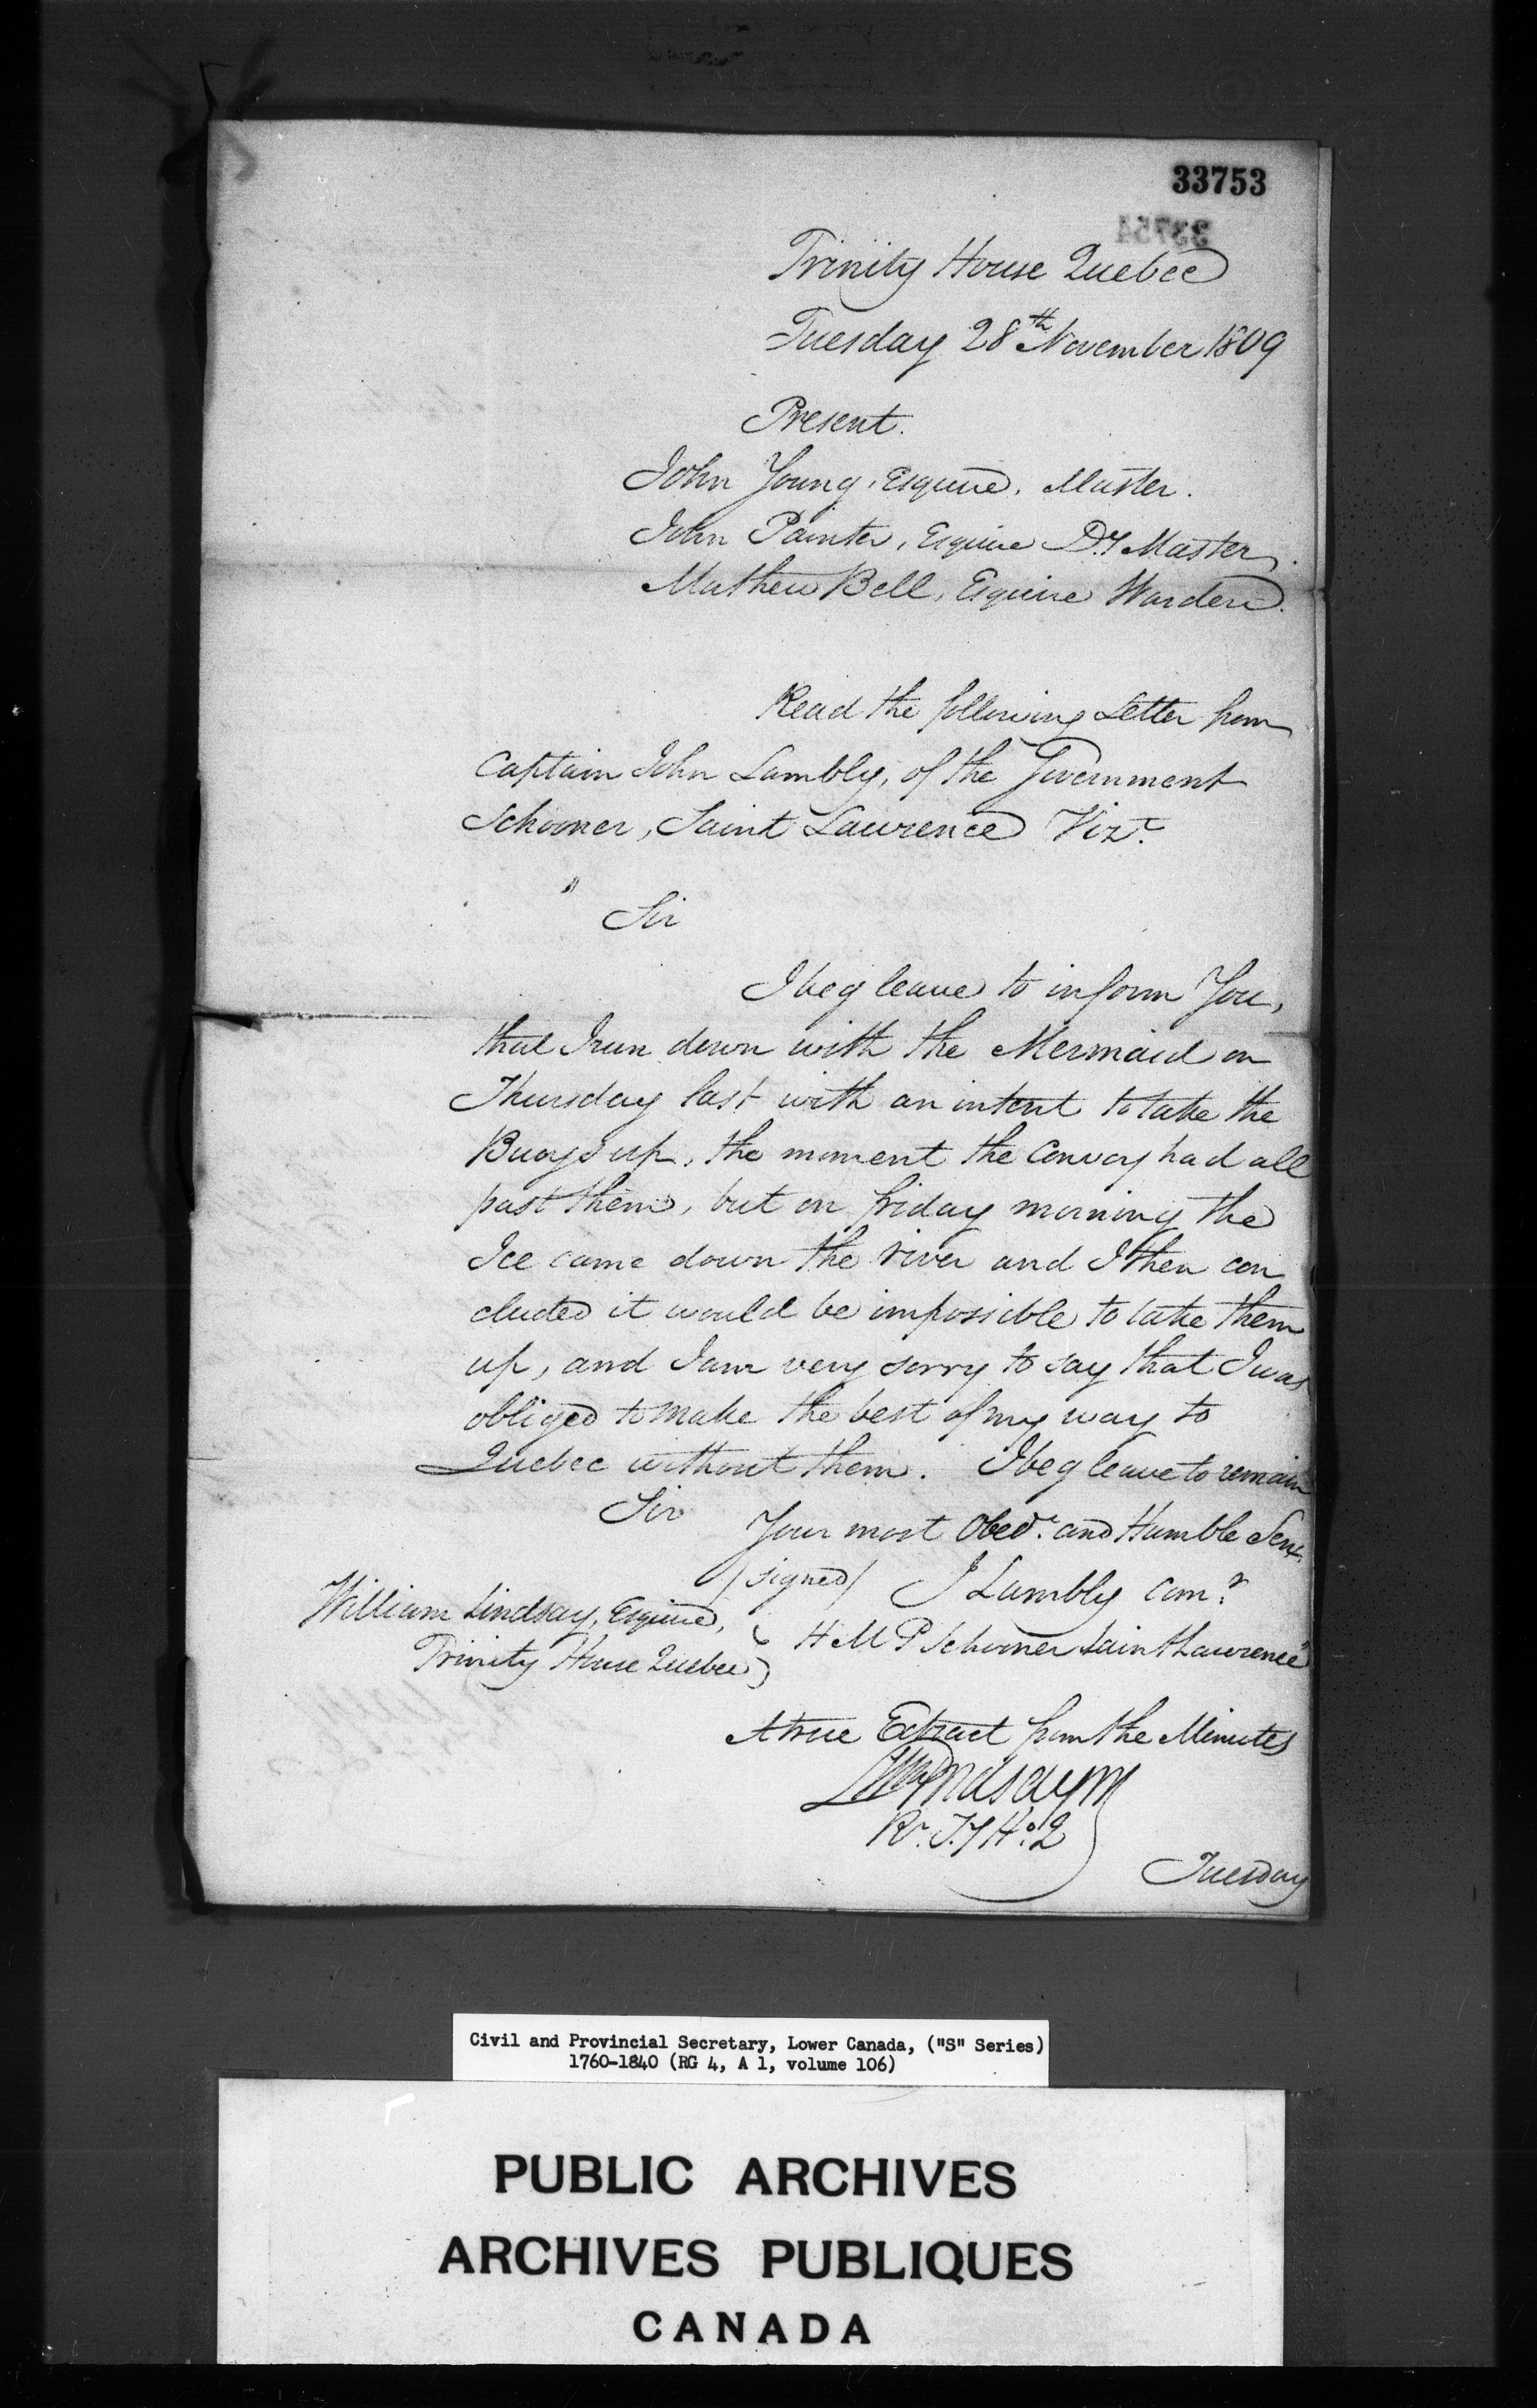 33753
33754
Trinity House Quebec
Tuesday 28th November 1809
Present.
John Young, Esquire, Master.
John Painter, Esquire Dy Master,
Mathew Bell, Esquire Warden.
Read the following Letter from
Captain John Lambly, of the Government
Schooner, Saint Lawrence Vizt.
" Sir
I beg leave to inform You,
that I run down with the Mermaid on
Thursday last with an intent to take the
Buoys up, the moment the Convoy had all
past them, but on friday morning the
Ice came down the river and I then con
cluded it would be imposible to take them
up, and I am very sorry to say that I was
obliged to make the best of my way to
Quebec without them. I beg leave to remain
Sir
Your most Obedt. and Humble Servt.
(signed) J Lambly Comr.
William Lindsay, Esquire,
H M P Schooner Saint Lawrence"
Trinity House Quebec
A true Extract from the Minutes
Wm Lindsay
Rr. T.y Ho. Q
Tuesday
Civil and Provincial Secretary, Lower Canada, ("S" Series)
1760-1840 (RG 4, A 1, volume 106)
PUBLIC ARCHIVES
ARCHIVES PUBLIQUES
CANADA